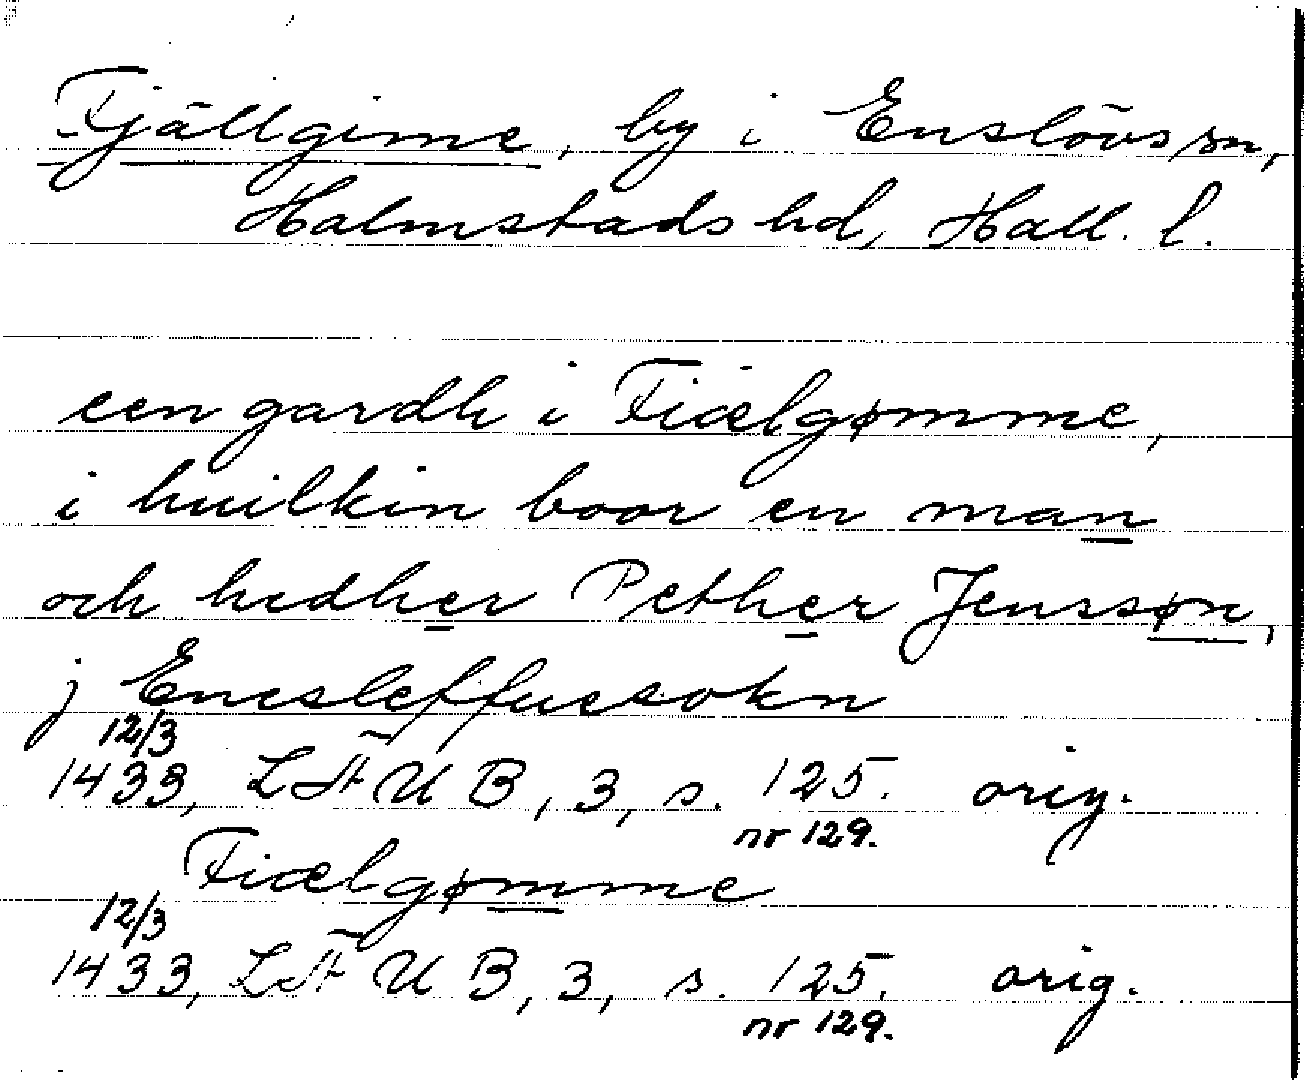 Fjällgime, by i Enslövs sn,
Halmstads hd, Hall. l.
een gardh i Fiælgømme,
i huilkin boor en man
och hedher Pether Jenssøn,
j Enesleffuesokn
12/3
1433, LÄUB, 3, s. 125. orig.
nr 129.
Fiælgømme
12/3
1433, LÄUB, 3, s. 125. orig.
nr 129.